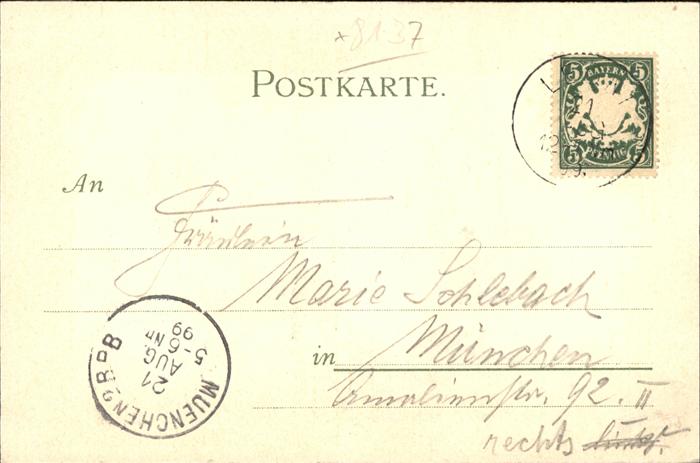 ×8137
POSTKARTE.
5 BAYERN 5
5 PFENNIG 5
21
12
99.
An
Fräulein
Marie Schlebach
in München
Amalienstr. 92. II
rechts links.
MUENCHEN 2 B.P.B
21
AUG.
5-6 Nm
99